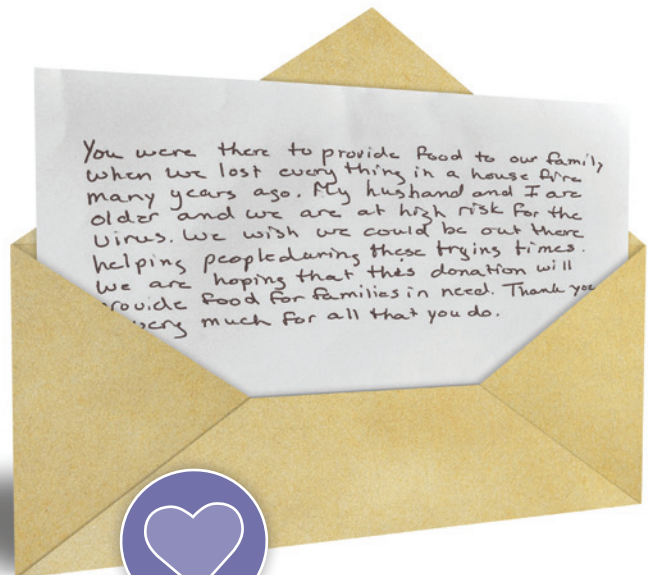 You were there to provide food to our family
when we lost everything in a house fire
many years ago. My husband and I are
older and we are at high risk for the
virus. We wish we could be out there
helping people during these trying times.
We are hoping that this donation will
provide food for families in need. Thank you
very much for all that you do.